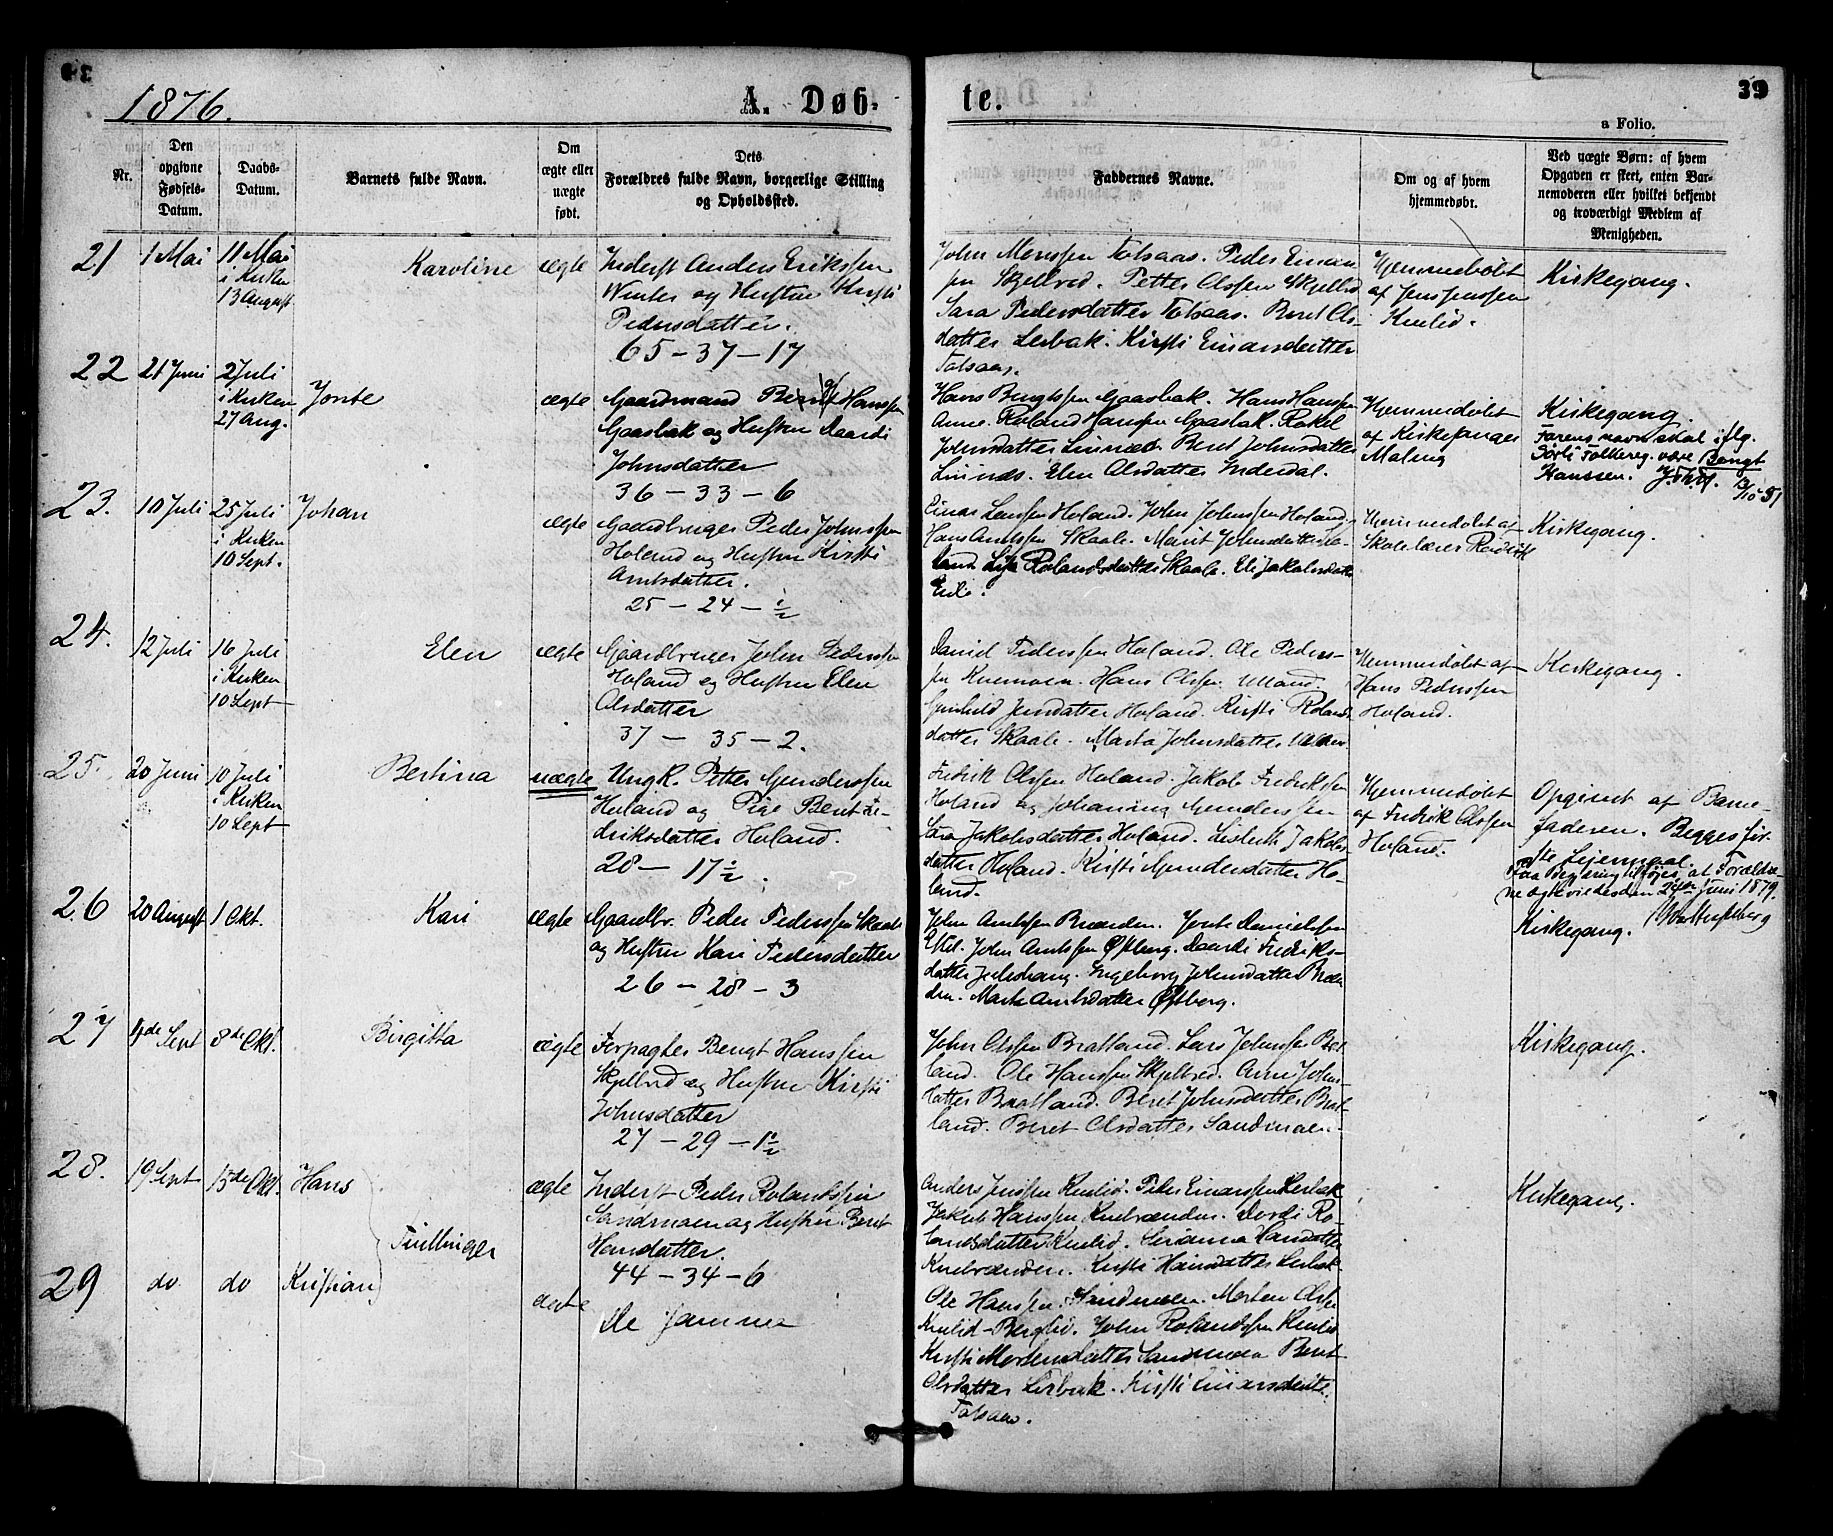 1876.
A. Døbte.
39
a Folio.
Nr.
Den opgivne Fødsels-Datum.
Daabs-Datum.
Barnets fulde Navn.
Om ægte eller uægte født.
Dets Forældres fulde Navn, borgerlige Stilling og Opholdssted.
Faddernes Navne.
Om og af hvem hjemmedøbt.
Ved uægte Børn: af hvem Opgaven er skeet, enten Barnemoderen eller hvilket bekjendt og troværdigt Medlem af Menigheden.
21
1 Mai
11 Mai
i Kirken
13 August
Karoline
ægte
Inderst Anders Erikssen
Winter og Hustru Kirsti
Pedersdatter.
65 - 37 - 17
John Monssen Totsaas. Peder Einars
sen Skjelbred. Petter Olssen Skjelbred
Sara Pedersdatter Totsaas. Beret Ols-
datter Lerbak. Kirsti Einarsdatter
Totsaas.
Hjemmedøbt
af Jens Jenssen
Kvelid.
Kirkegang.
22
21 Juni
2 Juli
i Kirken
27 Aug.
Jonte
ægte
Gaardmand Hanssen
Gaasbak og Hustru Daardi
Johnsdatter
36 - 33 - 6
Hans Bengtssen Gaasbak. Hans Hanssen
Anne. Roland Hanssen Gaasbak. Rakel
Johnsdatter Linnæs. Beret Johnsdatter
Linnæs. Elen Olsdatter Inderdal.
Hjemmedøbt
af Kirkesanger
Maling
Kirkegang.
Farens navn skal iflg.
Sørli Folkereg. være Bengt
Hanssen.
23.
10 Juli
25 Juli
i Kirken
10 Sept.
Johan
ægte
Gaardbruger Peder Johnssen
Holand og Hustru Kirsti
Arntsdatter.
25 - 24 - ½
Einar Larssen Holand. John Johnssen Holand,
Hans Arntssen Skaale. Marit Johnsdatter Ho-
land Lisa Rolandsdatter Skaale. Eli Jakobsdatter
Hjemmedøbt af
Skolelærer
Kirkegang.
24.
12 Juli
16 Juli
i Kirken
10 Sept
Elen
ægte
Gaardbruger John Pederssen
Holand og Hustru Elen
Olsdatter
37 - 35 - 2.
Daniel Pederssen Holand. Ole Peders-
sen Kvemoen. Hans Olssen
Gunhild Jensdatter Holand. Kirsti Rolands
datter Skaale. Marta Johnsdatter
Hjemmedøbt af
Hans Pederssen
Holand.
Kirkegang.
25.
20 Juni
10 Juli
i Kirken
10 Sept
Bertina
uægte
Ungk. Petter Gunderssen
Holand og Pige Berit Fre-
driksdatter Holand.
28 - 17½.
Fredrik Olssen Holand. Jakob Fredrikssen
Holand og Johannes Gunderssen
Sara Jakobsdatter Holand. Lisbeth Jakobs
datter Holand. Kirsti Gundersdatter Ho-
land.
Hjemmedøbt
af Fredrik Olssen
Holand.
Opgivet af Barne-
faderen. Begges før-
ste Leiermaal.
Paa Begjæring tilføjes at Forældre-
ne egteviedes den Juni 1879.
26
20 August
1 Okt.
Kari
ægte
Gaardbr. Peder Pederssen Skaale
og Hustru Kari Pedersdatter
26 - 28 - 3
John Arntssen Bruenden. Jonte Danielssen
John Arntssen Østberg. Daardi Fredriks-
datter Julestrang. Ingeborg Johnsdatter
Marte Arntsdatter Østberg.
Kirkegang.
27
4de Sept
8de Okt.
Birgitta
ægte
Forpagter Bengt Hanssen
Skjelbred og Hustru Kirsti
Johnsdatter
27 - 29 - 1½
John Olssen Bratland. Lars Johnssen Brat-
land. Ole Hanssen Skjelbred. Anne Johns-
datter Bratland. Beret Johnsdatter Brat-
land. Beret Olsdatter Sandmoen.
Kirkegang.
28.
19 Sept
15de Okt.
Hans
Tvillinger
ægte
Inderst Peder Rolandssen
Sandmoen og Hustru Beret
Hansdatter.
44 - 34 - 6
Anders Jenssen Kvelid. Peder Einarssen Lerbak
Jakob Hanssen Kvebrænden. Dordi Ro-
landsdatter Kvelid. Serianna Hansdatter
Kvebrænden. Kirsti Hansdatter Lerbak.
Kirkegang.
29
do
do
Kristian
ægte
De samme
Ole Hanssen Sandmoen. Morten Olssen
Kvelid-Berglid. John Rolandssen Kvelid
Kirsti Mortensdatter Sandmoen Beret
Olsdatter Lerbak. Kirsti Einarsdatter
Totsaas.